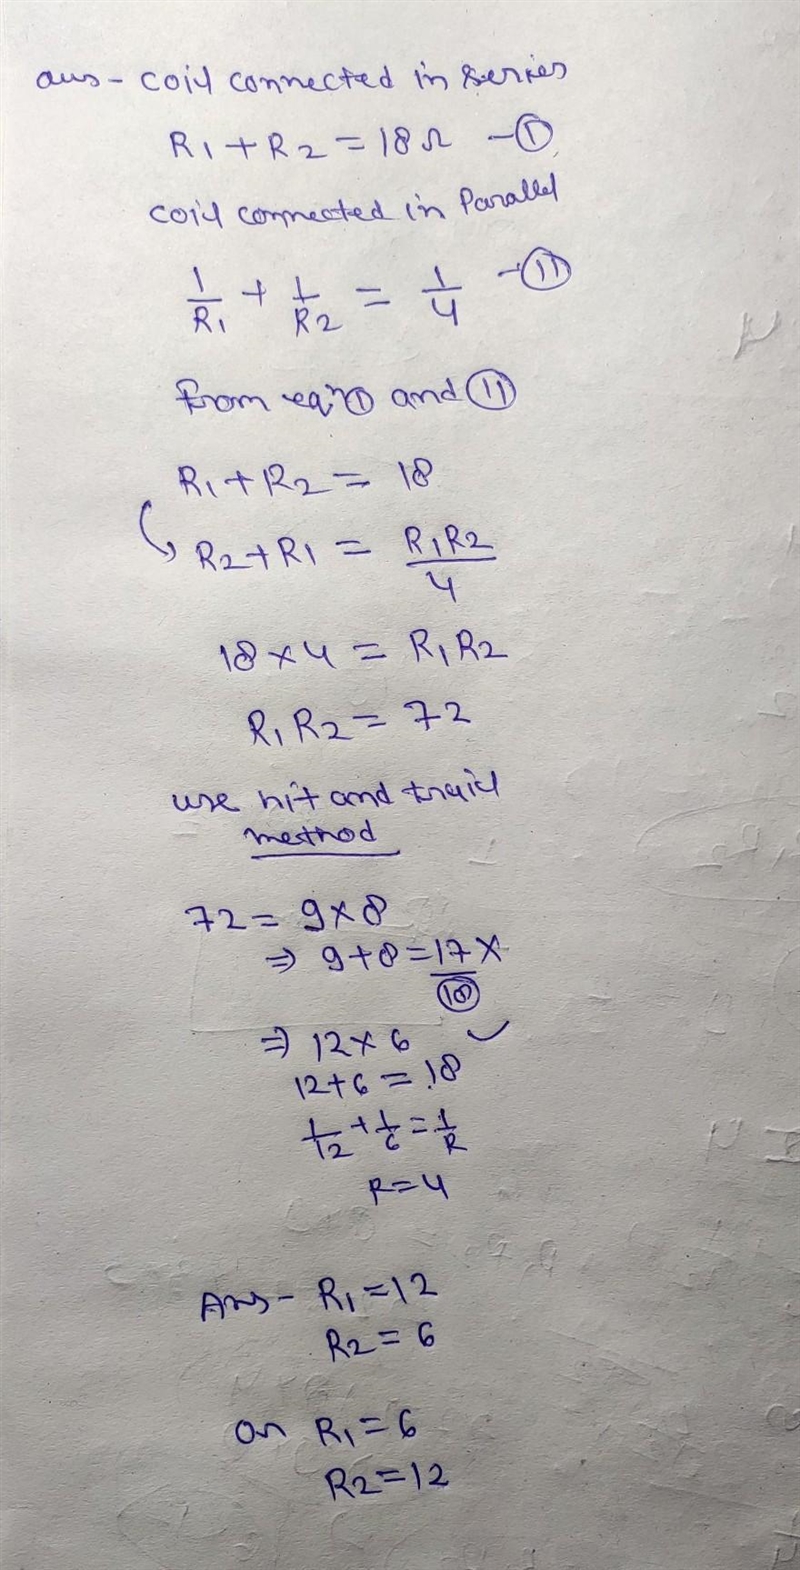 ans - coil connected in series
R1 + R2 = 18 Ω - (I)
coil connected in Parallel
1/R1 + 1/R2 = 1/4 - (II)
from eqn (I) and (II)
R1 + R2 = 18
R2 + R1 = R1R2/4
18 × 4 = R1R2
R1R2 = 72
use hit and traid
method
72 = 9 × 8
⇒ 9 + 8 = 17 ×
(18)
⇒ 12 × 6 ✓
12 + 6 = 18
1/12 + 1/6 = 1/R
R = 4
Ans - R1 = 12
R2 = 6
or R1 = 6
R2 = 12